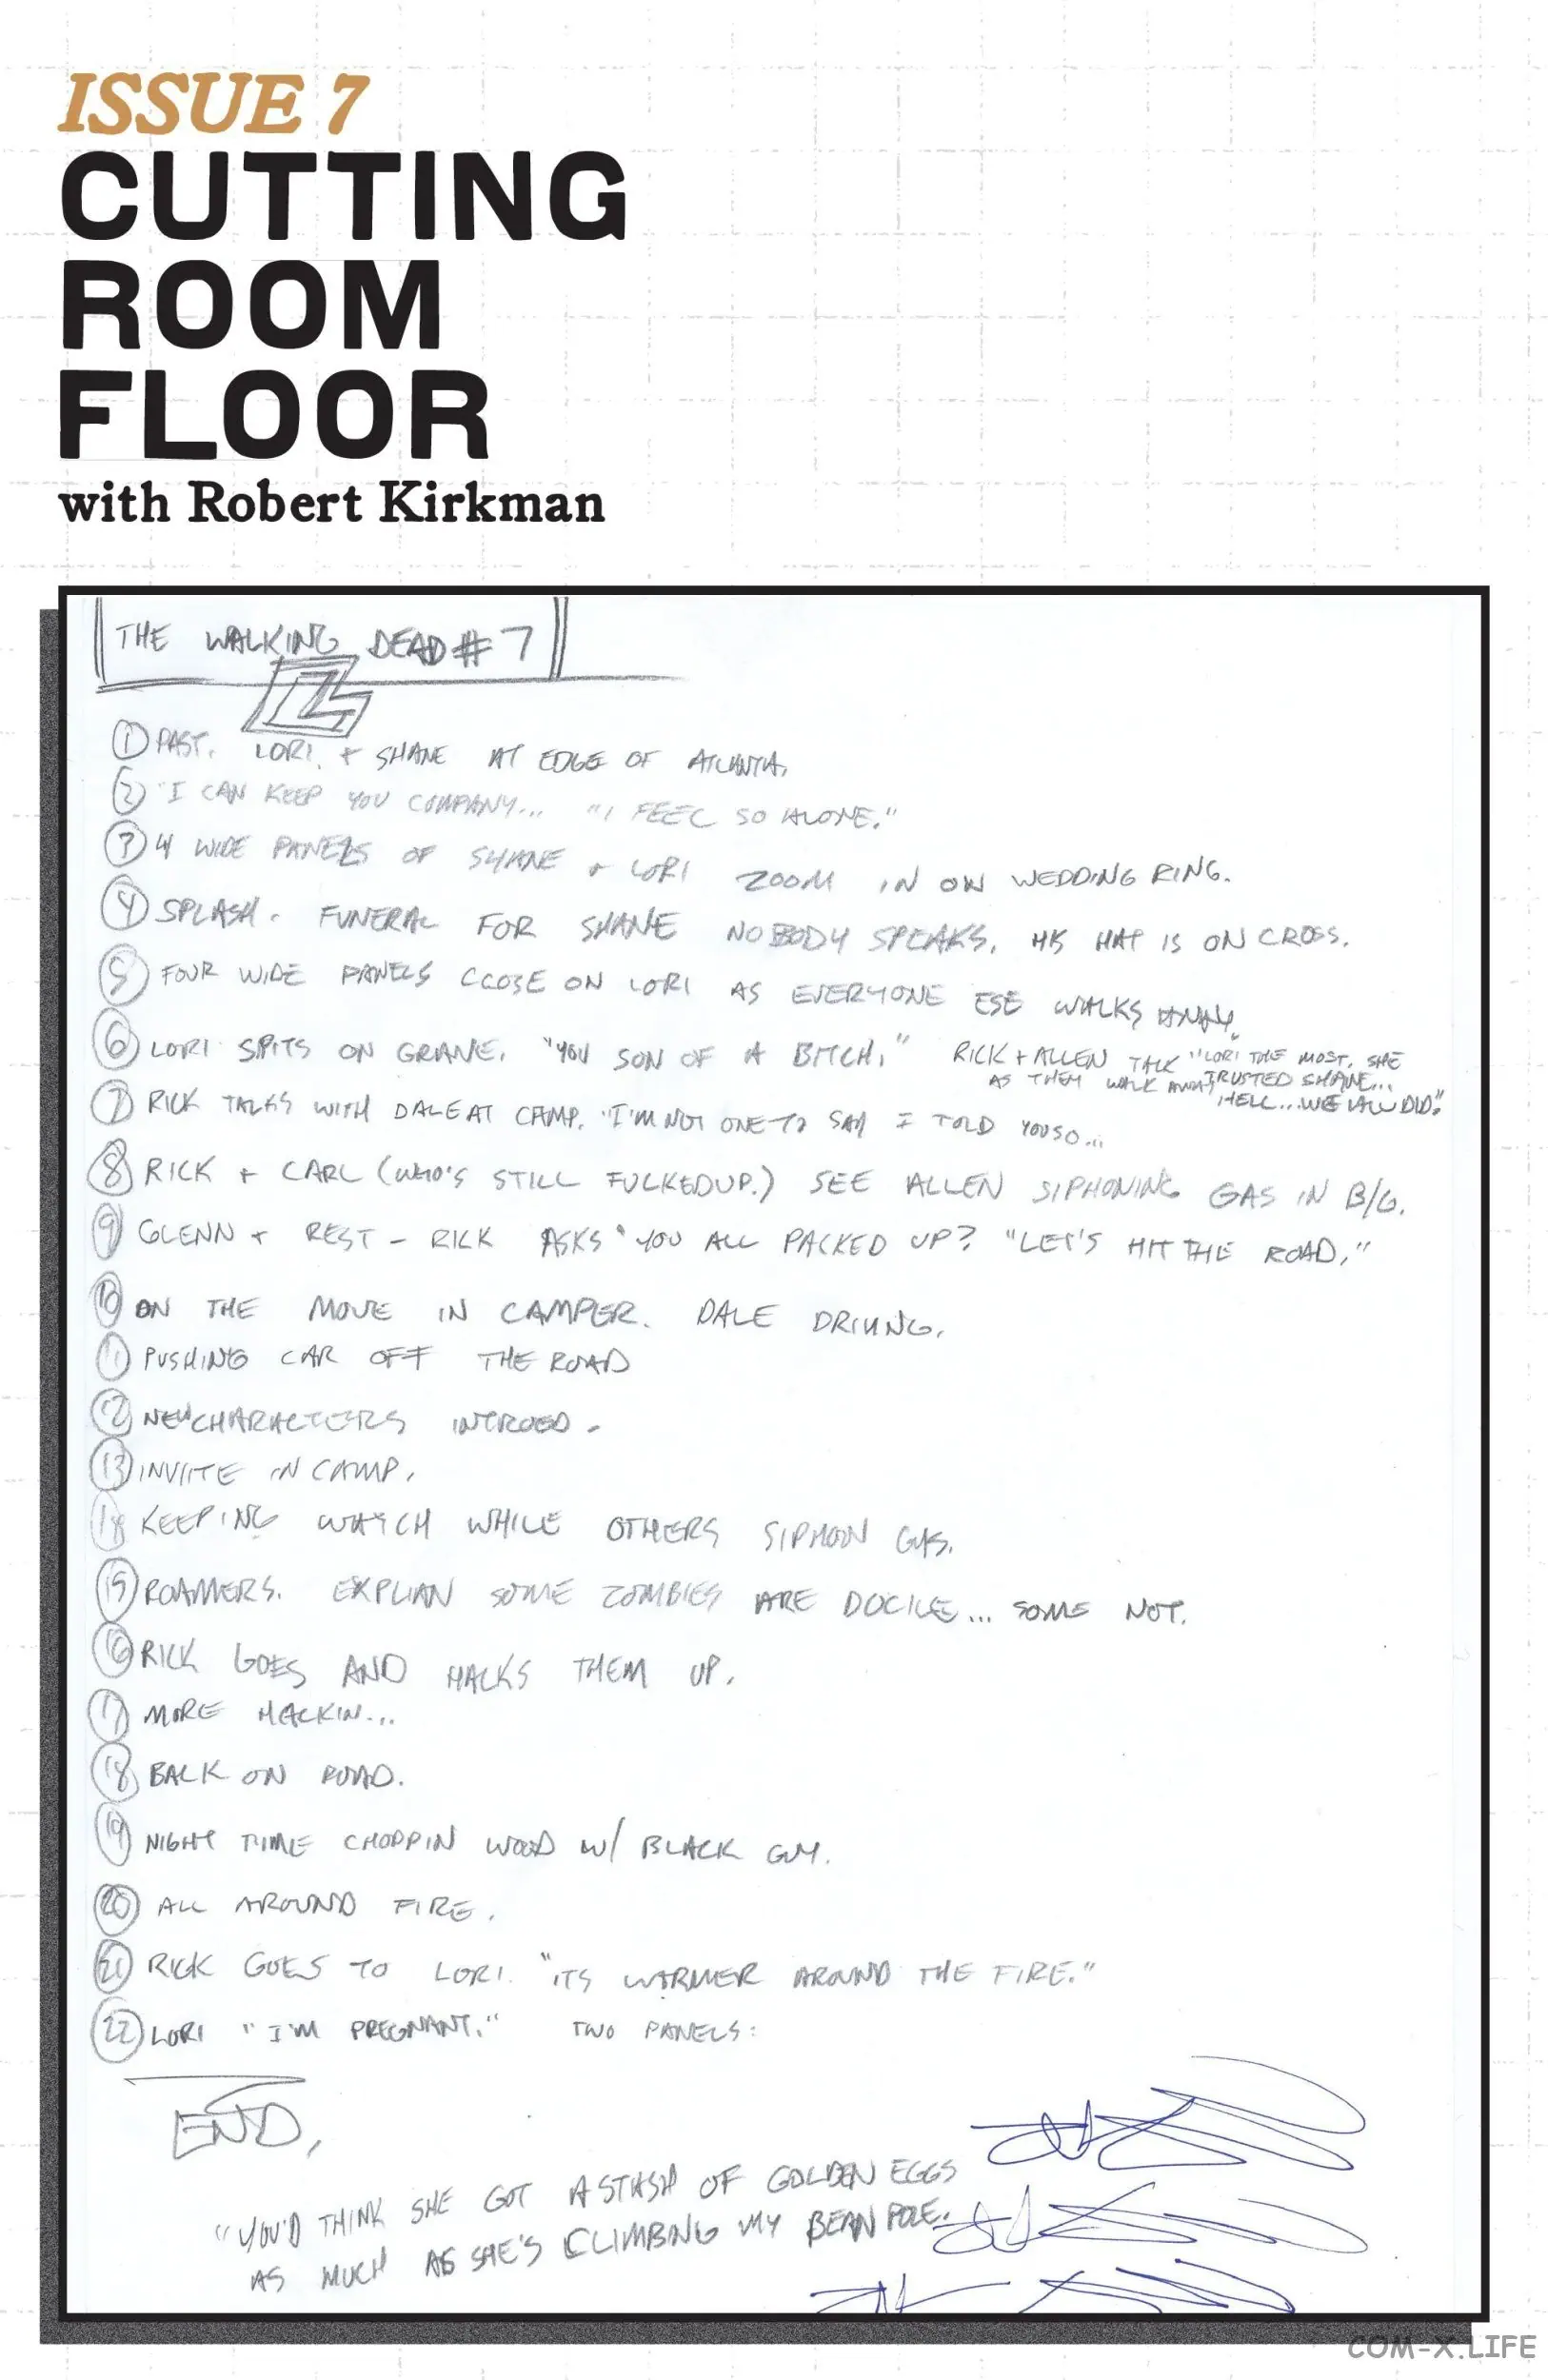 ISSUE 7
CUTTING
ROOM
FLOOR
with Robert Kirkman
THE WALKING DEAD #7
① PAST. LORI + SHANE AT EDGE OF ATLANTA.
② "I CAN KEEP YOU COMPANY... "I FEEL SO ALONE."
③ 4 WIDE PANELS OF SHANE + LORI ZOOM IN ON WEDDING RING.
④ SPLASH. FUNERAL FOR SHANE NOBODY SPEAKS. HIS HAT IS ON CROSS.
⑤ FOUR WIDE PANELS CLOSE ON LORI AS EVERYONE ESE WALKS AWAY.
⑥ LORI SPITS ON GRAVE. "YOU SON OF A BITCH." RICK + ALLEN TALK "LORI THE MOST. SHE
AS THEY WALK AWAY TRUSTED SHANE...
HELL... WE ALL DID."
⑦ RICK TALKS WITH DALE AT CAMP. "I'M NOT ONE TO SAY I TOLD YOU SO...
⑧ RICK + CARL (WHO'S STILL FUCKED UP.) SEE ALLEN SIPHONING GAS IN B/G.
⑨ GLENN + REST - RICK ASKS "YOU ALL PACKED UP? "LET'S HIT THE ROAD."
⑩ ON THE MOVE IN CAMPER. DALE DRIVING.
⑪ PUSHING CAR OFF THE ROAD
⑫ NEW CHARACTERS INTROED.
⑬ INVIITE IN CAMP.
⑭ KEEPING WATCH WHILE OTHERS SIPHON GAS.
⑮ ROAMERS. EXPLIAN SOME ZOMBIES ARE DOCILE... SOME NOT.
⑯ RICK GOES AND HACKS THEM UP.
⑰ MORE HACKIN...
⑱ BACK ON ROAD.
⑲ NIGHT TIME CHOPPIN WOOD W/ BLACK GUY.
⑳ ALL AROUND FIRE.
㉑ RICK GOES TO LORI. "ITS WARMER AROUND THE FIRE."
㉒ LORI "I'M PREGNANT." TWO PANELS:
END,
"YOU'D THINK SHE GOT A STASH OF GOLDEN EGGS
AS MUCH AS SHE'S CLIMBING MY BEAN POLE.
COM-X.LIFE